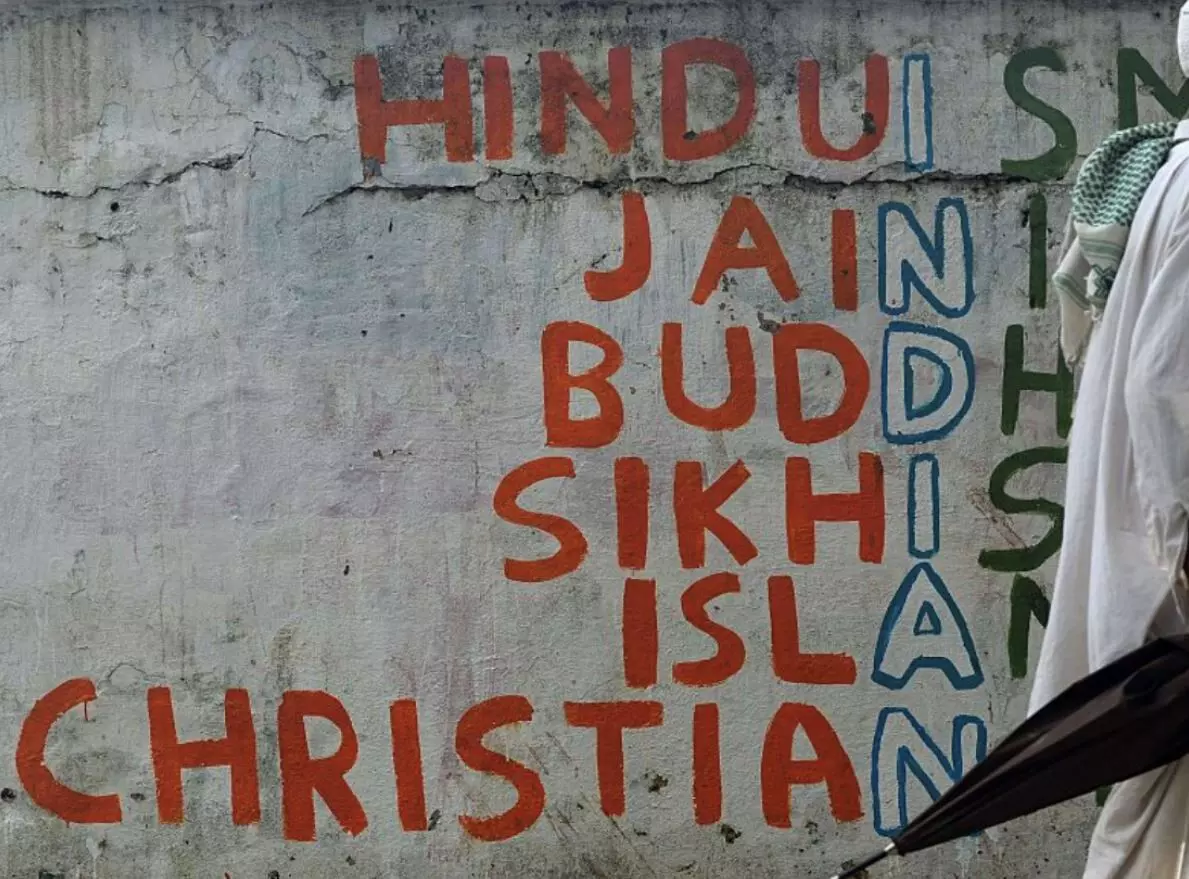 HINDUISM
JAINI
BUDDH
SIKHIS
ISLAM
CHRISTIAN